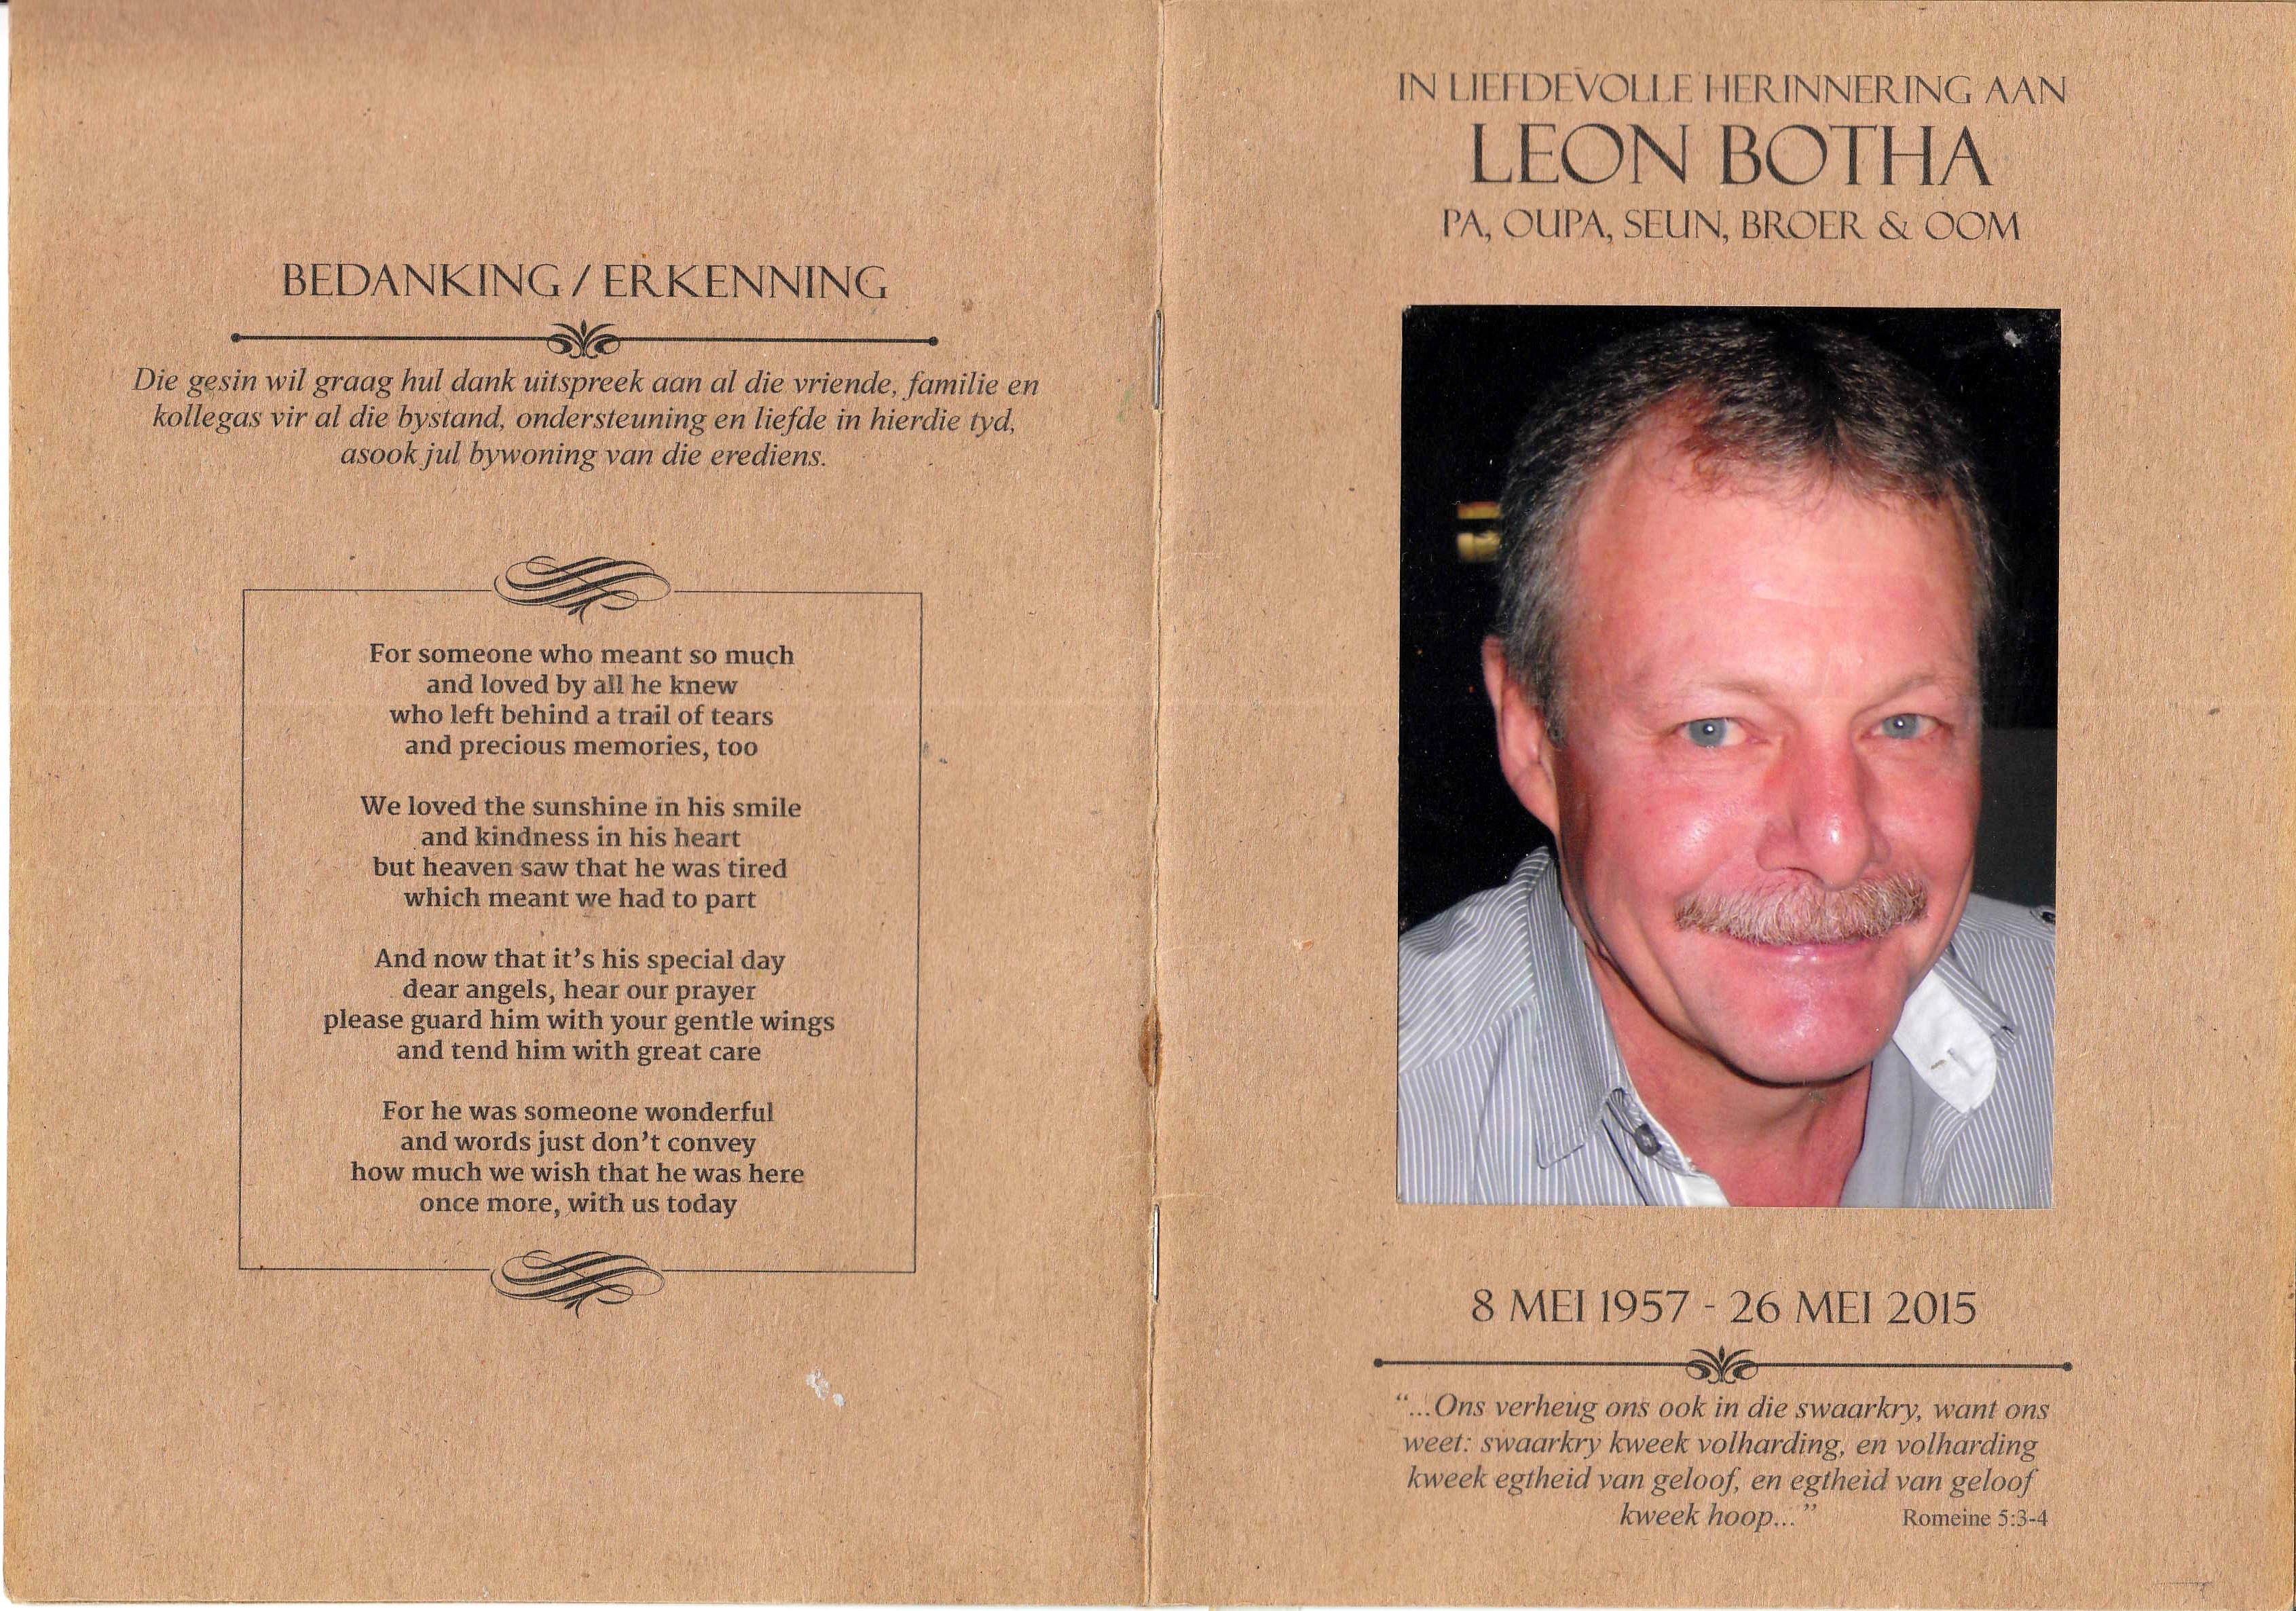 BEDANKING / ERKENNING
Die gesin wil graag hul dank uitspreek aan al die vriende, familie en
kollegas vir al die bystand, ondersteuning en liefde in hierdie tyd,
asook jul bywoning van die erediens.
For someone who meant so much
and loved by all he knew
who left behind a trail of tears
and precious memories, too
We loved the sunshine in his smile
and kindness in his heart
but heaven saw that he was tired
which meant we had to part
And now that it's his special day
dear angels, hear our prayer
please guard him with your gentle wings
and tend him with great care
For he was someone wonderful
and words just don't convey
how much we wish that he was here
once more, with us today
IN LIEFDEVOLLE HERINNERING AAN
LEON BOTHA
PA, OUPA, SEUN, BROER & OOM
8 MEI 1957 - 26 MEI 2015
"...Ons verheug ons ook in die swaarkry, want ons
weet: swaarkry kweek volharding, en volharding
kweek egtheid van geloof, en egtheid van geloof
kweek hoop..." Romeine 5:3-4